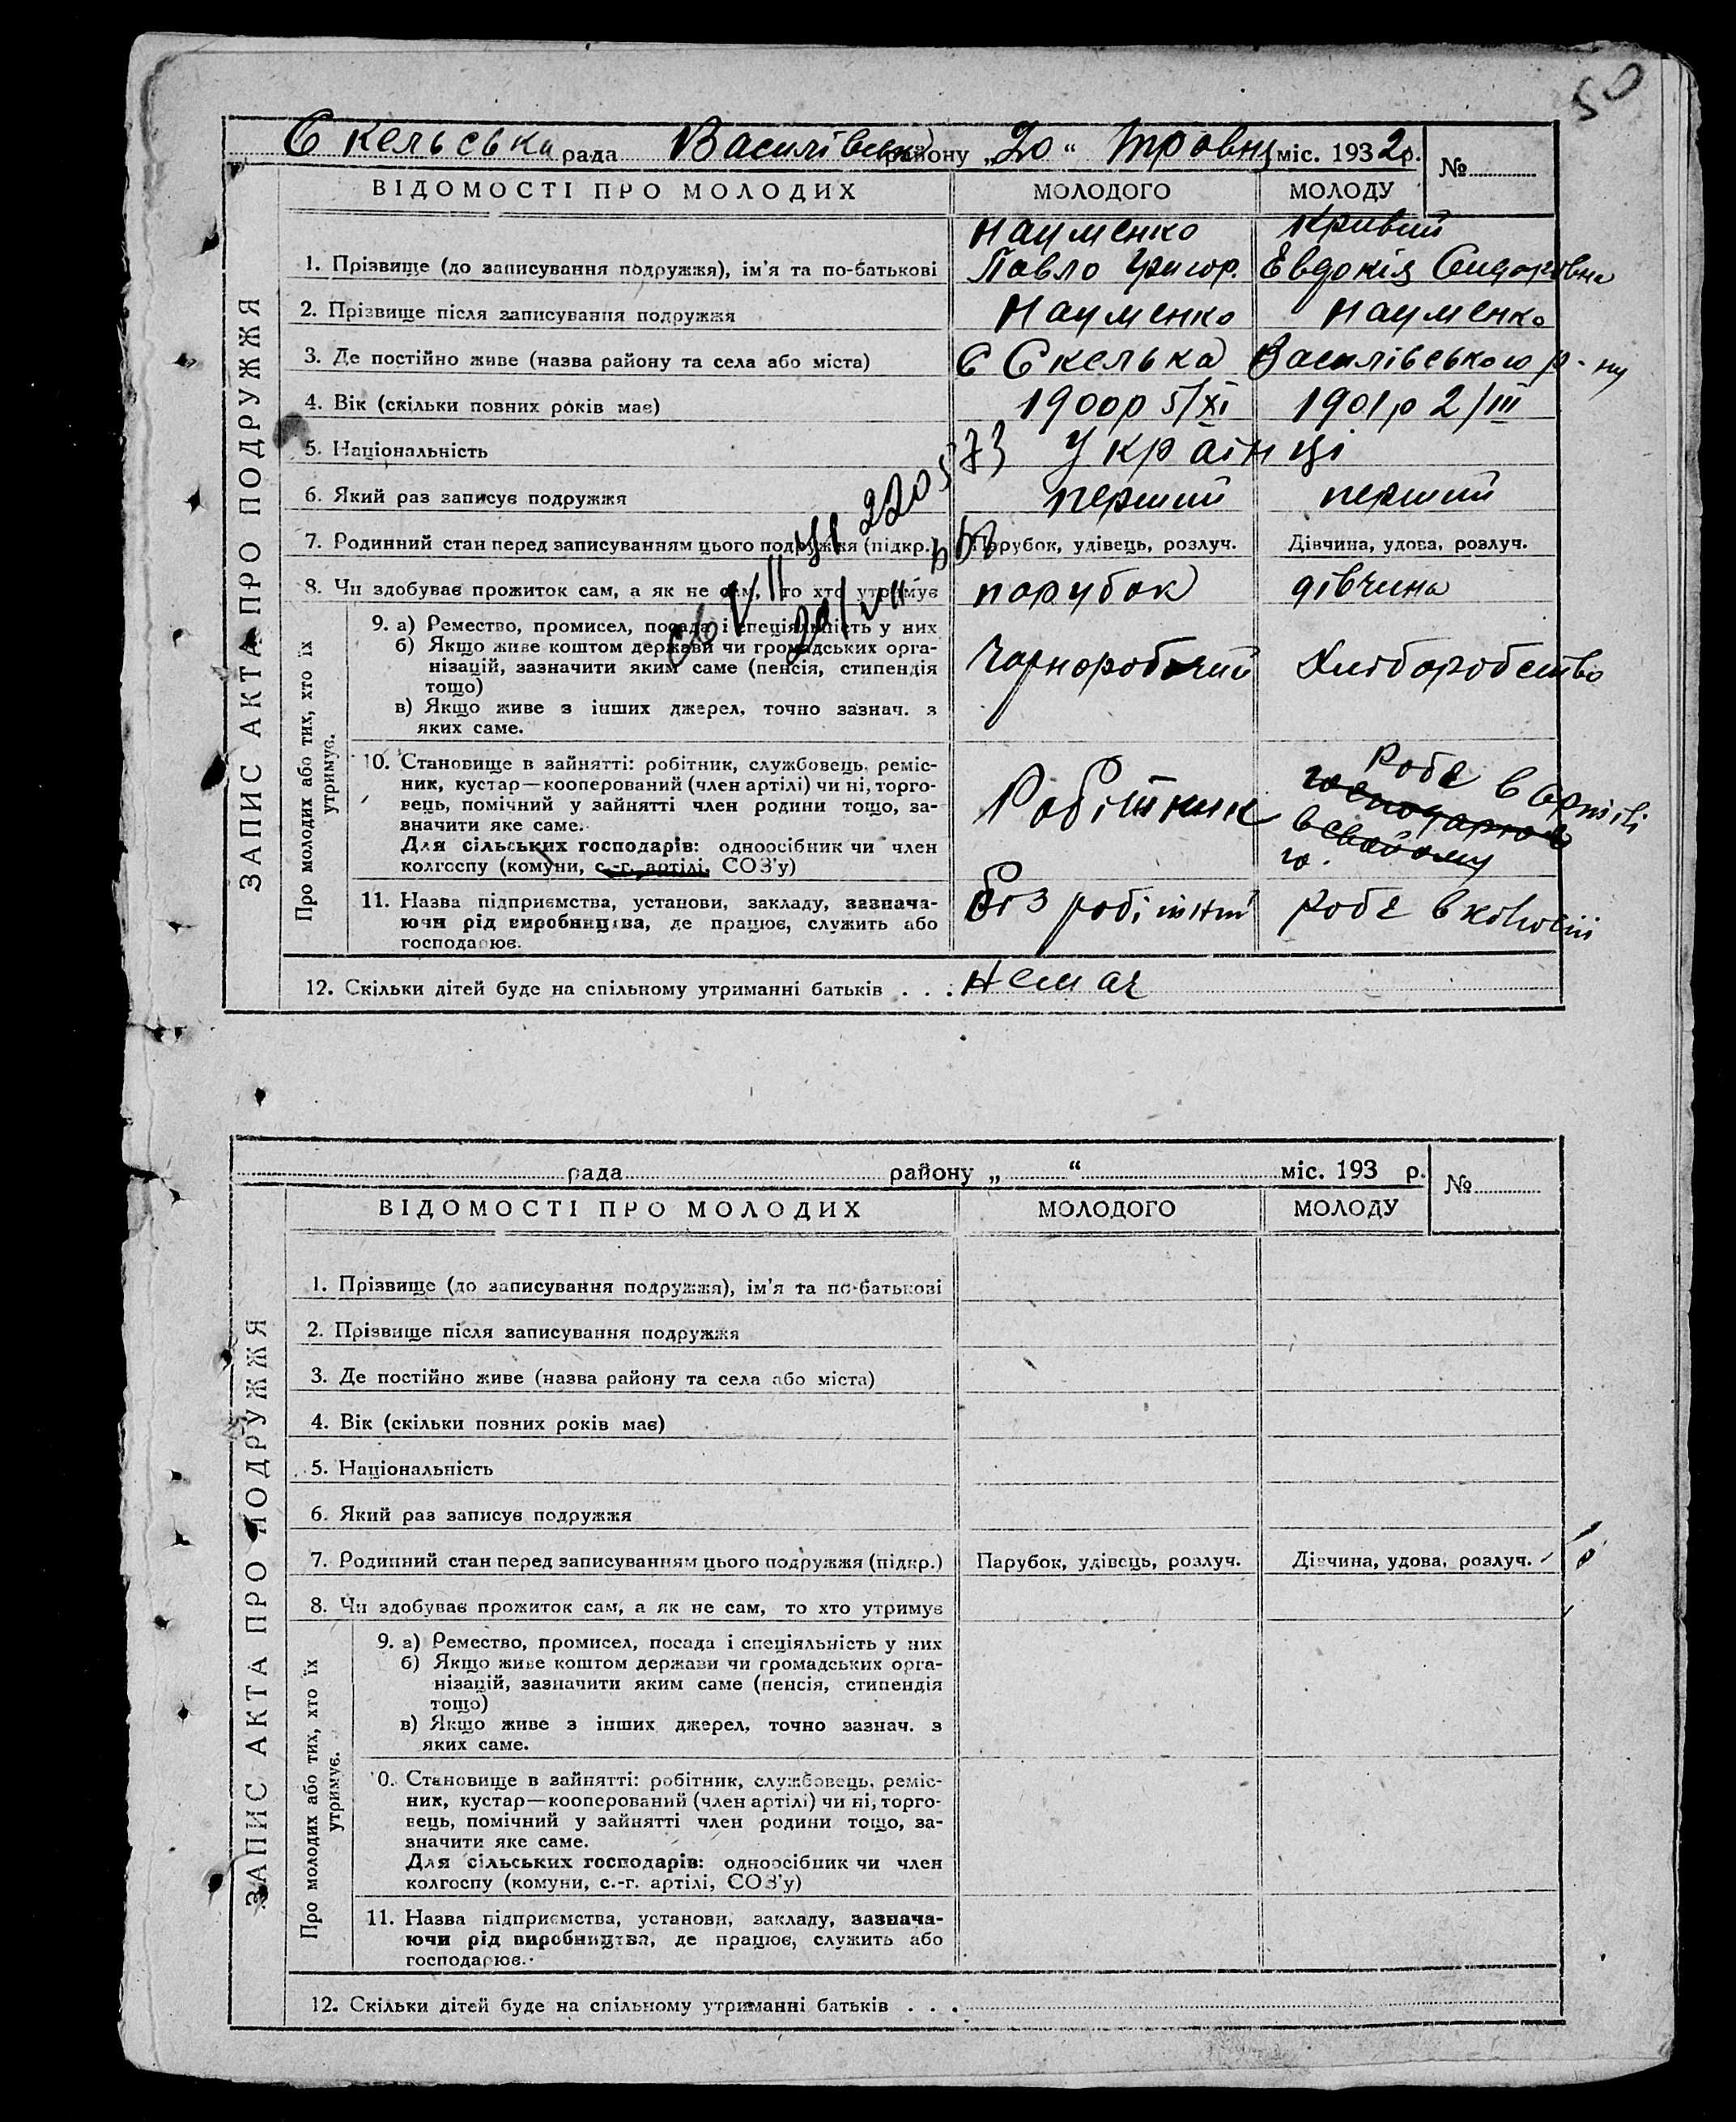 50
Скельська рада Василівська району „20“ травня міс. 1932р. №
ВІДОМОСТІ ПРО МОЛОДИХ МОЛОДОГО МОЛОДУ
ЗАПИС АКТА ПРО ПОДРУЖЖЯ
Науменко Кривий
1. Прізвище (до записування подружжя), ім'я та по-батькові Павло Григор. Евдокія Сидоровна
2. Прізвище після записування подружжя Науменко Науменко
3. Де постійно живе (назва району та села або міста) С Скелька Василівського р-ну
4. Вік (скільки повних років має) 1900р 5/XI 1901р 2/III
5. Національність Українці
6. Який раз записує подружжя перший перший
7. Родинний стан перед записуванням цього подружжя (підкр.) Парубок, удівець, розлуч. Дівчина, удова, розлуч.
8. Чи здобуває прожиток сам, а як не сам, то хто утримує парубок дівчина
Про молодих або тих, хто їх утримує.
9. а) Ремество, промисел, посада і спеціяльність у них
б) Якщо живе коштом держави чи громадських орга-
нізацій, зазначити яким саме (пенсія, стипендія
тощо)
в) Якщо живе з інших джерел, точно зазнач. з
яких саме.
Чорноробочий Хліборобство
10. Становище в зайнятті: робітник, службовець, реміс-
ник, кустар—кооперований (член артілі) чи ні, торго-
вець, помічний у зайнятті член родини тощо, за-
значити яке саме.
Для сільських господарів: одноосібник чи член
колгоспу (комуни, с.-г. артілі, СОЗ'у)
Робітник робе в артілі
11. Назва підприємства, установи, закладу, зазнача-
ючи рід виробництва, де працює, служить або
господарює.
Без робітний робе в колгоспі
12. Скільки дітей буде на спільному утриманні батьків . . . немає
рада району „ “ міс. 193 р. №
ВІДОМОСТІ ПРО МОЛОДИХ МОЛОДОГО МОЛОДУ
ЗАПИС АКТА ПРО ПОДРУЖЖЯ
1. Прізвище (до записування подружжя), ім'я та по-батькові
2. Прізвище після записування подружжя
3. Де постійно живе (назва району та села або міста)
4. Вік (скільки повних років має)
5. Національність
6. Який раз записує подружжя
7. Родинний стан перед записуванням цього подружжя (підкр.) Парубок, удівець, розлуч. Дівчина, удова, розлуч.
8. Чи здобуває прожиток сам, а як не сам, то хто утримує
Про молодих або тих, хто їх утримує.
9. а) Ремество, промисел, посада і спеціяльність у них
б) Якщо живе коштом держави чи громадських орга-
нізацій, зазначити яким саме (пенсія, стипендія
тощо)
в) Якщо живе з інших джерел, точно зазнач. з
яких саме.
0. Становище в зайнятті: робітник, службовець, реміс-
ник, кустар—кооперований (член артілі) чи ні, торго-
вець, помічний у зайнятті член родини тощо, за-
значити яке саме.
Для сільських господарів: одноосібник чи член
колгоспу (комуни, с.-г. артілі, СОЗ'у)
11. Назва підприємства, установи, закладу, зазнача-
ючи рід виробництва, де працює, служить або
господарює.
12. Скільки дітей буде на спільному утриманні батьків . . .